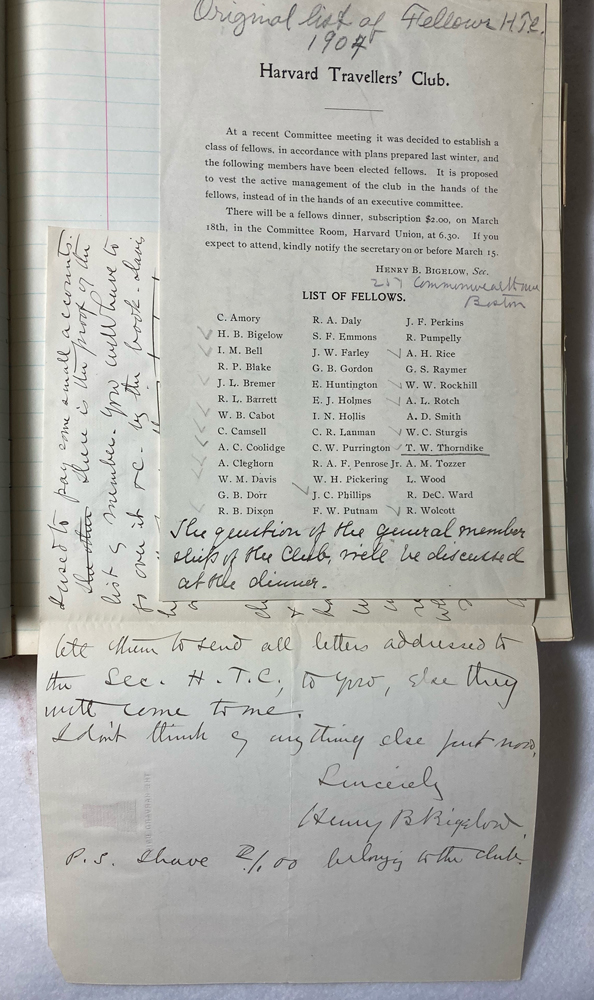 Original list of Fellows H.T.C.
1907
Harvard Travellers' Club.
At a recent Committee meeting it was decided to establish a
class of fellows, in accordance with plans prepared last winter, and
the following members have been elected fellows. It is proposed
to vest the active management of the club in the hands of the
fellows, instead of in the hands of an executive committee.
There will be a fellows dinner, subscription $2.00, on March
18th, in the Committee Room, Harvard Union, at 6.30. If you
expect to attend, kindly notify the secretary on or before March 15.
HENRY B. BIGELOW, Sec.
217 Commonwealth Ave
Boston
LIST OF FELLOWS.
C. Amory
H. B. Bigelow
I. M. Bell
R. P. Blake
J. L. Bremer
R. L. Barrett
W. B. Cabot
C. Camsell
A. C. Coolidge
A. Cleghorn
W. M. Davis
G. B. Dorr
R. B. Dixon
R. A. Daly
S. F. Emmons
J. W. Farley
G. B. Gordon
E. Huntington
E. J. Holmes
I. N. Hollis
C. R. Lanman
C. W. Purrington
R. A. F. Penrose Jr.
W. H. Pickering
J. C. Phillips
F. W. Putnam
J. F. Perkins
R. Pumpelly
A. H. Rice
G. S. Raymer
W. W. Rockhill
A. L. Rotch
A. D. Smith
W. C. Sturgis
T. W. Thorndike
A. M. Tozzer
L. Wood
R. DeC. Ward
R. Wolcott
The question of the general member
ship of the Club, will be discussed
at the dinner.
I used to pay some small accounts.
there is the proof of the
list of members. You will have to
go over it &c. by the book. Davis
them to send all letters addressed to
the Sec. H.T.C, to you, else they
will come to me.
I don't think of anything else just now.
Sincerely
Henry B Bigelow.
P.S. I have belonging to the club.